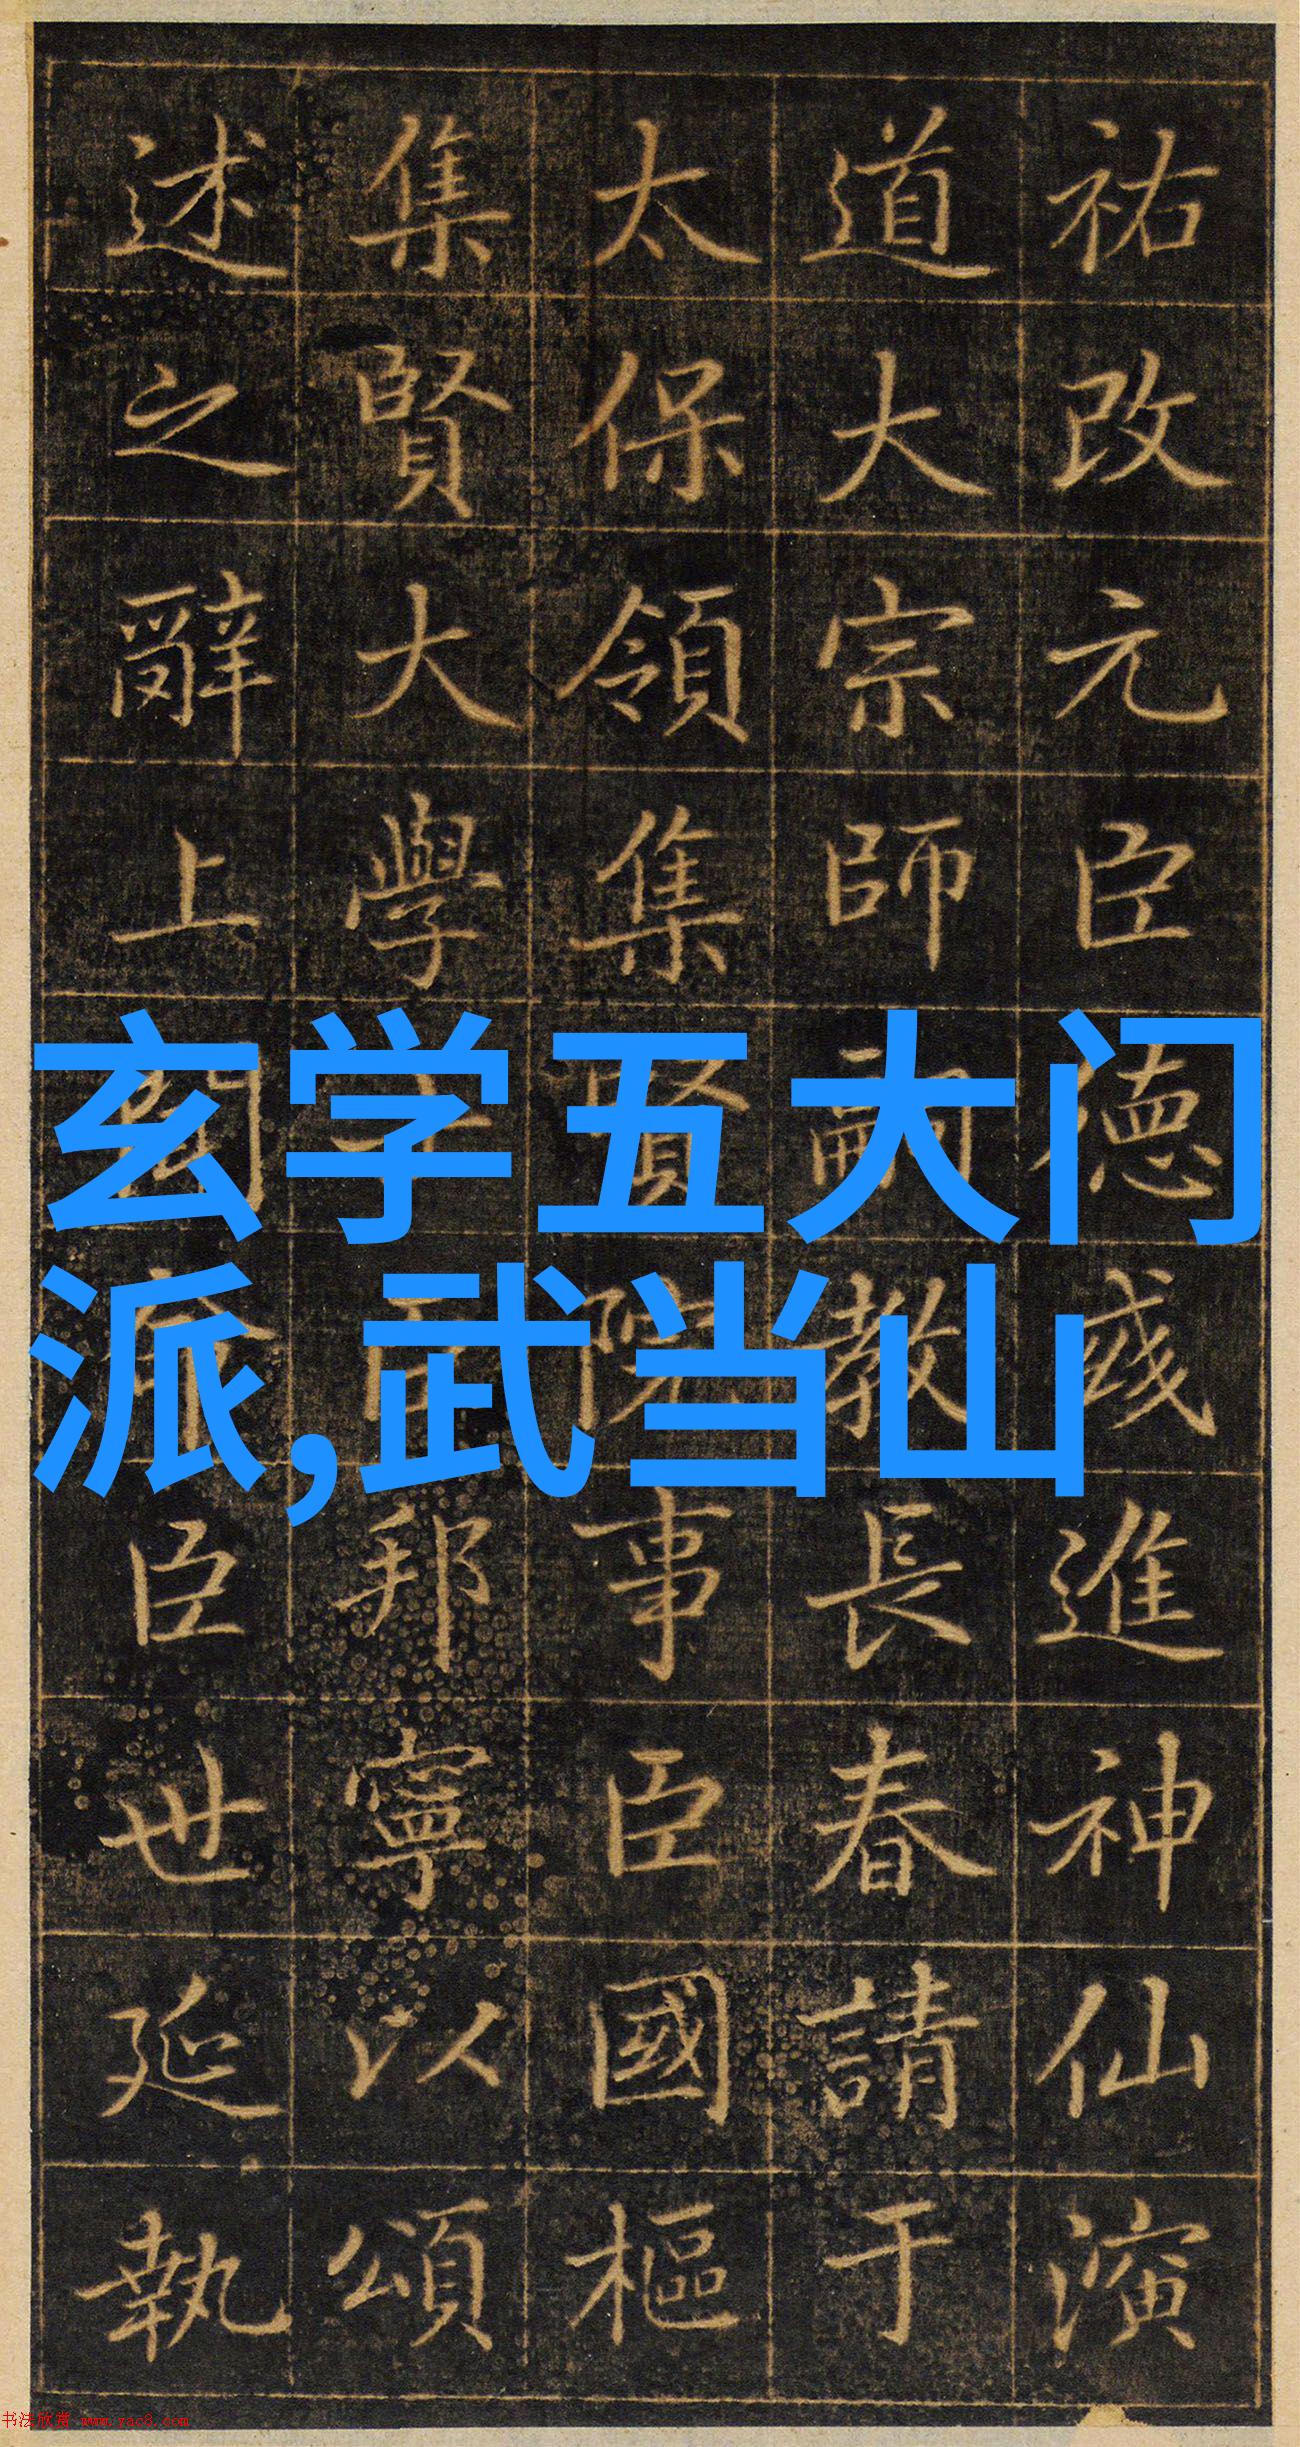 祐改元臣德彧進神仙演
道大宗師嗣教長春請于
太保領集賢院事臣國樞
集賢大學士臣邦寧以頌
述之辭上聞臣世延執
玄学五大门
派,武当山
书法欣赏 www.yac8.com